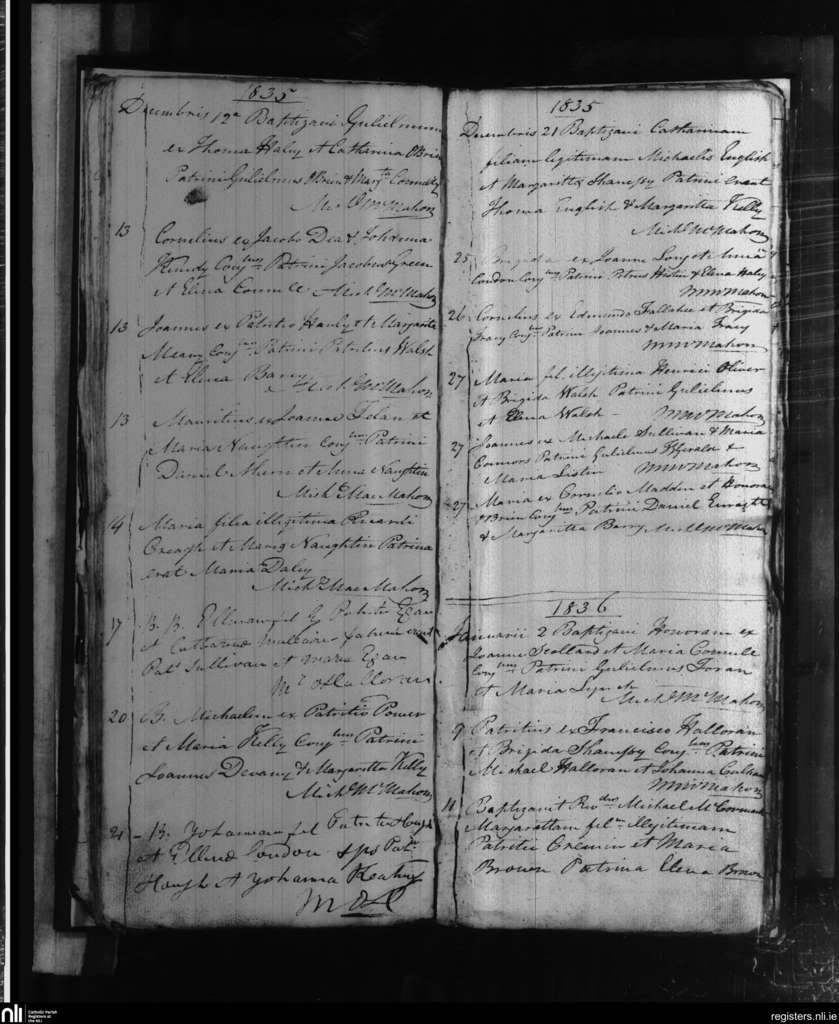 1835
Decembris 12a Baptizavi Gulielmum
ex Thoma Haly et Catharina OBrien
Patrini Gulielmus OBrien & Margta Connelly
Michl McMahon
13 Cornelius ex Jacobo Dea & Johanna
Kennedy Conjbus Patrini Jacobus Green
et Elena Connell Michl McMahon
13 Joannes ex Patritio Hanly et Margarita
Meany Conjbus Patrini Patritius Walsh
et Elena Barry
Michl McMahon
13 Mauritius ex Joanne Folan et
Maria Naughten Conjbus Patrini
Daniel Ahern et Anna Naughten
Michl MacMahon
14 Maria filia illigitima Ricardi
Creagh et Maria Naughtin Patrina
erat Maria Daly
Michl MacMahon
17 B. B. fil Patritii Egan
et Catharine erant
Patt Sullivan et Maria Egan
Ml OHalloran
20 B. Michaelem ex Patritio Power
et Maria Kelly Conjbus Patrini
Joannes Devany & Margaretta Kelly
Michl McMahon
21 B. Yohannam fil Patritii Hough
et Ellene London sps Patt
Hough et Yohanna Keating
M OH
1835
Decembris 21 Baptizavi Catharinam
filiam legitimam Michaelis English
et Margaritta Shanessy Patrini erant
Thoma English & Margaretta Kelly
Michl McMahon
25 Brigida ex Joanne Long et Anna
London Conjbus Patrini Petrus & Elena Haly
MMcMahon
26 Cornelius ex Edmundo Fallahee et Brigida
Tracy Conjbus Patrini Joannes & Maria Tracy
MMcMahon
27 Maria fil illigitima Henrici Oliver
et Brigida Walsh Patrini Gulielmus
et Elena Walsh - MMcMahon
27 Joannes ex Michaele Sullivan & Maria
Connors Patrini Gulielmus Fitzgerald &
Maria Lister MMcMahon
27 Maria ex Cornelio Madden et Honora
OBrien Conjbus Patrini Daniel
& Margaretta Barry Michl McMahon
1836
Januarii 2 Baptizavi Honoram ex
Joanne Scolland et Maria Connell
Conjbus Patrini Gulielmus Foran
et Maria Lynch
Michl McMahon
9 Patritius ex Francisco Halloran
et Brigida Shanessy Conjbus Patrini
Michael Halloran et Johanna
MMcMahon
11 Baptizavit Revdus Michael McCormack
Margarettam filam illegitimam
Patritii Cremin et Maria
Brown Patrina Elena Brown
registers.nli.ie
nli Catholic Parish
Registers at
the NLI